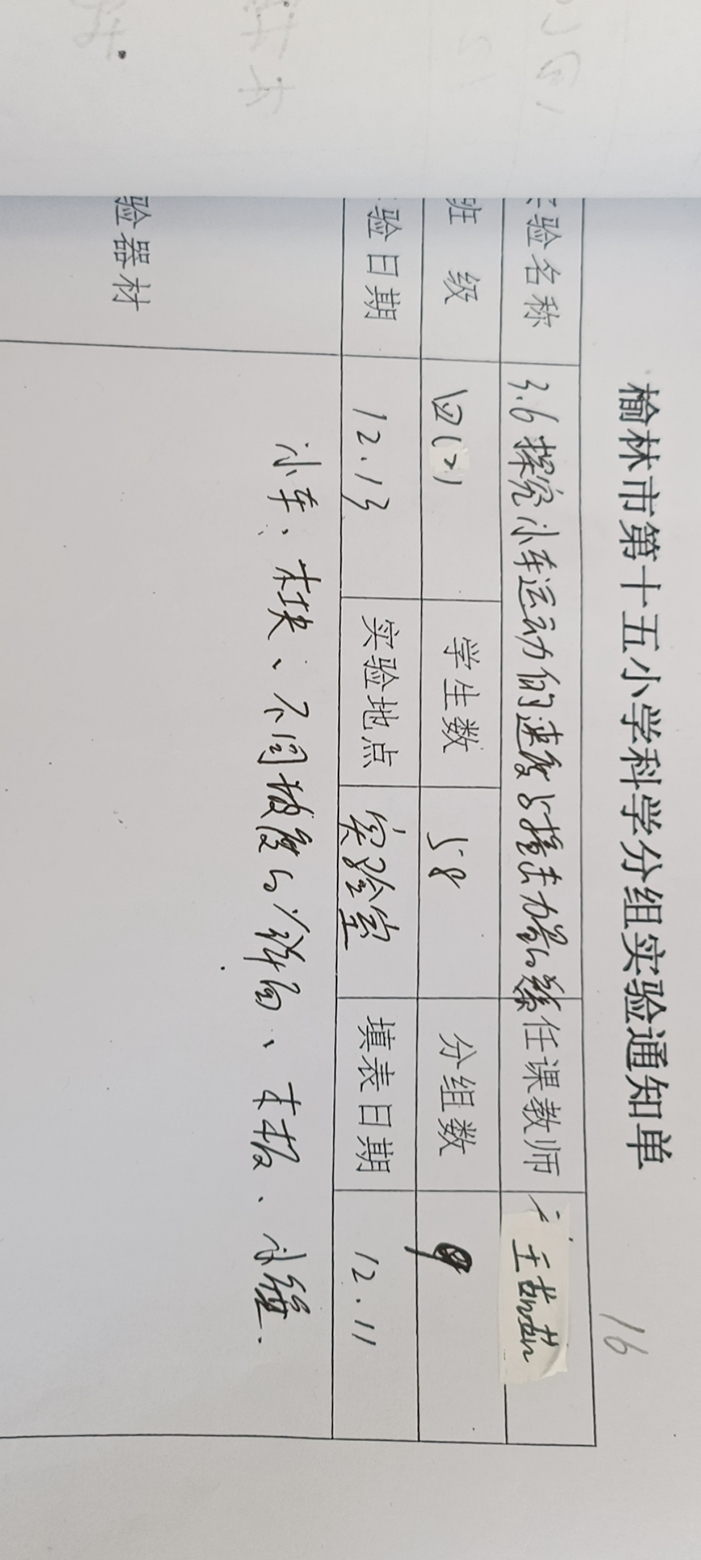 榆林市第十五小学科学分组实验通知单
16
验名称 3.6探究小车运动的速度与撞击力量的关系 任课教师 王茹茹
班 级 四(2) 学生数 58 分组数 9
验日期 12.13 实验地点 实验室 填表日期 12.11
验器材 小车、木块、不同坡度的斜面、木板、